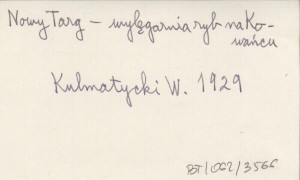 Nowy Targ – wylęgarnia ryb na Ko-
wańcu
Kulmatycki W. 1929
BT/062/3566